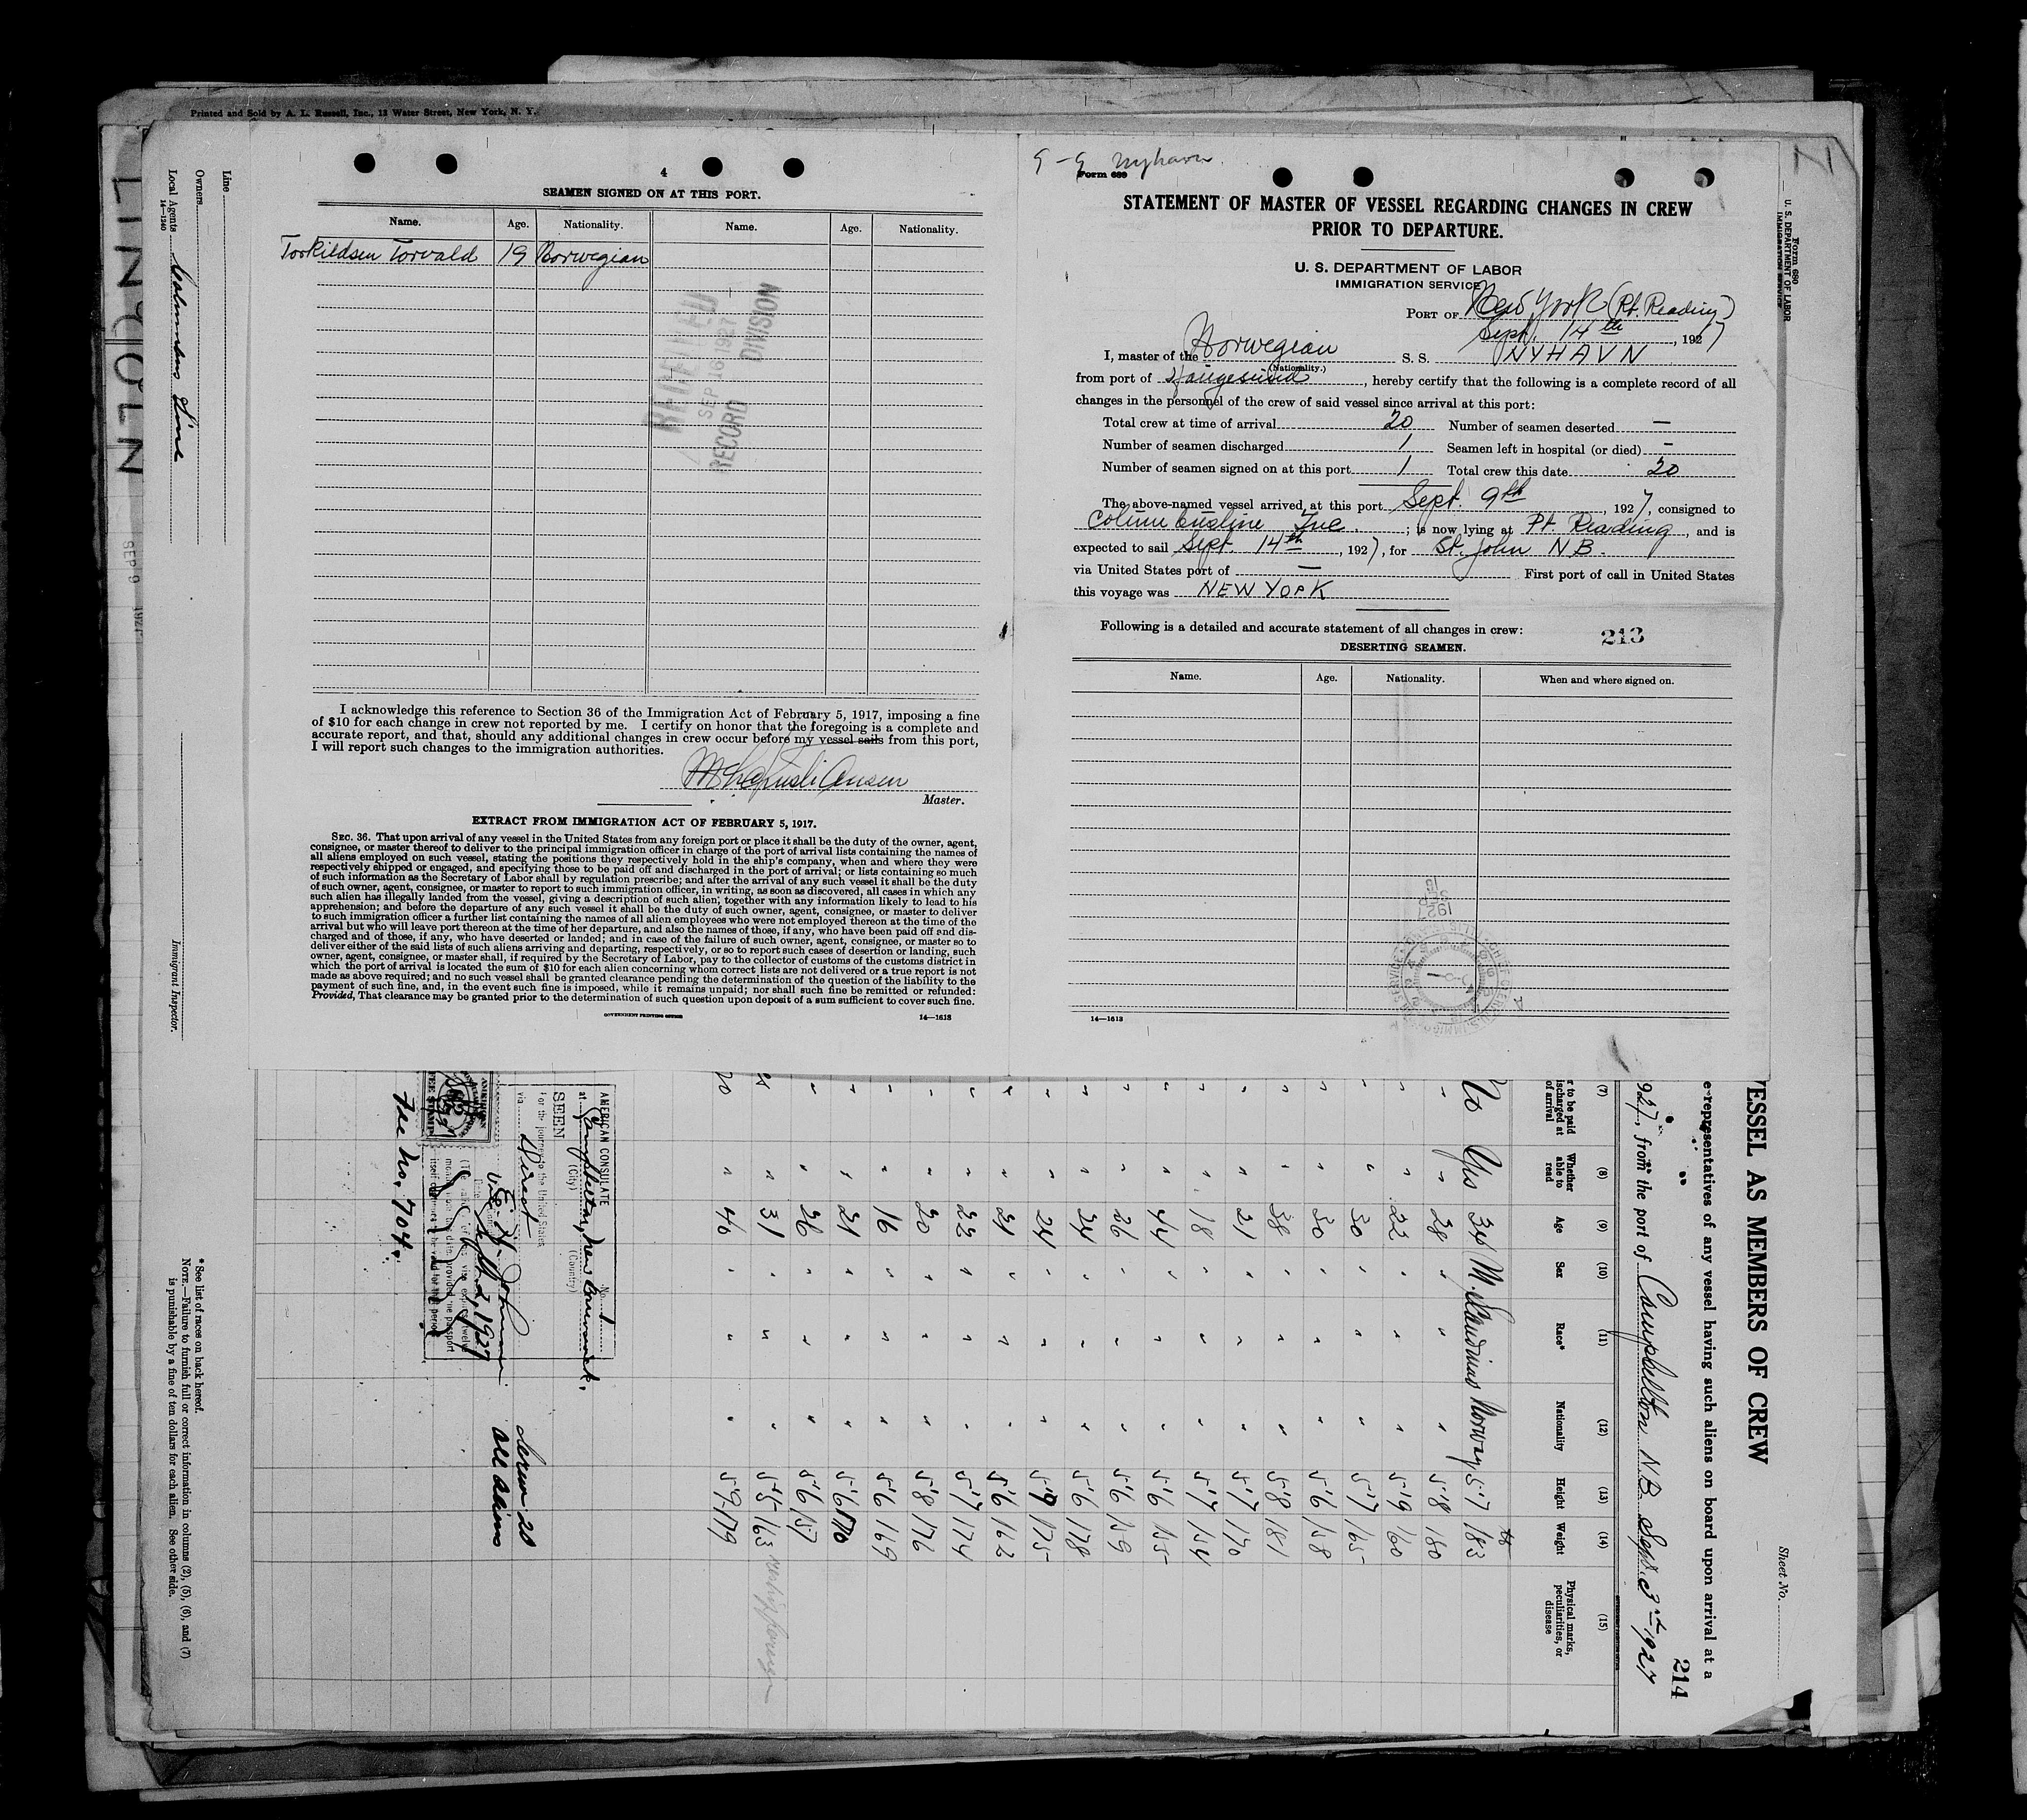 Printed and Sold by A. L. Russell, Inc., 13 Water Street, New York, N. Y.
LINCOLN
SEP 9 1927
Line
Owners
Local Agents
14—1240
Immigrant Inspector.
4
SEAMEN SIGNED ON AT THIS PORT.
Name. Age. Nationality. Name. Age. Nationality.
Torkildsen Torvald 19 Norwegian
SEP 16 1927
RECORD DIVISION
I acknowledge this reference to Section 36 of the Immigration Act of February 5, 1917, imposing a fine
of $10 for each change in crew not reported by me. I certify on honor that the foregoing is a complete and
accurate report, and that, should any additional changes in crew occur before my vessel sails from this port,
I will report such changes to the immigration authorities.
Master.
EXTRACT FROM IMMIGRATION ACT OF FEBRUARY 5, 1917.
SEC. 36. That upon arrival of any vessel in the United States from any foreign port or place it shall be the duty of the owner, agent,
consignee, or master thereof to deliver to the principal immigration officer in charge of the port of arrival lists containing the names of
all aliens employed on such vessel, stating the positions they respectively hold in the ship's company, when and where they were
respectively shipped or engaged, and specifying those to be paid off and discharged in the port of arrival; or lists containing so much
of such information as the Secretary of Labor shall by regulation prescribe; and after the arrival of any such vessel it shall be the duty
of such owner, agent, consignee, or master to report to such immigration officer, in writing, as soon as discovered, all cases in which any
such alien has illegally landed from the vessel, giving a description of such alien, together with any information likely to lead to his
apprehension; and before the departure of any such vessel it shall be the duty of such owner, agent, consignee, or master to deliver
to such immigration officer a further list containing the names of all alien employees who were not employed thereon at the time of the
arrival but who will leave port thereon at the time of her departure, and also the names of those, if any, who have been paid off and dis-
charged and of those, if any, who have deserted or landed; and in case of the failure of such owner, agent, consignee, or master so to
deliver either of the said lists of such aliens arriving and departing, respectively, or so to report such cases of desertion or landing, such
owner, agent, consignee, or master shall, if required by the Secretary of Labor, pay to the collector of customs of the customs district in
which the port of arrival is located the sum of $10 for each alien concerning whom correct lists are not delivered or a true report is not
made as above required; and no such vessel shall be granted clearance pending the determination of the question of the liability to the
payment of such fine, and, in the event such fine is imposed, while it remains unpaid; nor shall such fine be remitted or refunded:
Provided, That clearance may be granted prior to the determination of such question upon deposit of a sum sufficient to cover such fine.
GOVERNMENT PRINTING OFFICE 14—1613
9-9 Nyhavn
Form 689
STATEMENT OF MASTER OF VESSEL REGARDING CHANGES IN CREW
PRIOR TO DEPARTURE.
U. S. DEPARTMENT OF LABOR
IMMIGRATION SERVICE
PORT OF New York (Pt. Reading)
Sept. 14th, 1927
I, master of the Norwegian S. S. NYHAVN
(Nationality.)
from port of Haugesund, hereby certify that the following is a complete record of all
changes in the personnel of the crew of said vessel since arrival at this port:
Total crew at time of arrival 20 Number of seamen deserted —
Number of seamen discharged 1 Seamen left in hospital (or died) -
Number of seamen signed on at this port 1 Total crew this date 20
The above-named vessel arrived at this port Sept. 9th, 1927, consigned to
Columbusline Inc.; is now lying at Pt. Reading, and is
expected to sail Sept. 14th, 1927, for St. John N B.
via United States port of — First port of call in United States
this voyage was NEW YORK
Following is a detailed and accurate statement of all changes in crew:
213
DESERTING SEAMEN.
Name. Age. Nationality. When and where signed on.
14—1613
Form 680
U. S. DEPARTMENT OF LABOR
IMMIGRATION SERVICE
Sheet No.
214
VESSEL AS MEMBERS OF CREW
representatives of any vessel having such aliens on board upon arrival at a
927, from the port of Campbellton N.B. Sept. 3rd 1927
(7) (8) (9) (10) (11) (12) (13) (14) (15)
Whether able to read
Age
Sex
Race*
Nationality
Height
Weight
Physical marks, peculiarities, or disease
No Yes 34 M. Scandinav Norway 5'7 183
" " 28 " " " 5'8 180
" " 22 " " " 5'9 160
" " 30 " " " 5'7 165
" " 30 " " " 5'6 158
" " 38 " " " 5'8 181
" " 21 " " " 5'7 170
" " 18 " " " 5'7 154
" " 44 " " " 5'6 155
" " 26 " " " 5'6 159
" " 34 " " " 5'6 178
" " 24 " " " 5'9 175
" " 21 " " " 5'6 162
" " 22 " " " 5'7 174
" " 20 " " " 5'8 176
" " 16 " " " 5'6 169
" " 21 " " " 5'6 170
" " 26 " " " 5'6 157
" 31 " " " 5'5 163
" 46 " " " 5'9 179
AMERICAN CONSULATE
at Campbellton, New Brunswick.
(City) (Country)
No. 1
SEEN
For the journey to the United States
via Direct
Sept. 2, 1927
Fee No. 704.
Screw 20
All aliens
* See list of races on back hereof.
NOTE.—Failure to furnish full or correct information in columns (2), (5), (6), and (7)
is punishable by a fine of ten dollars for each alien. See other side.